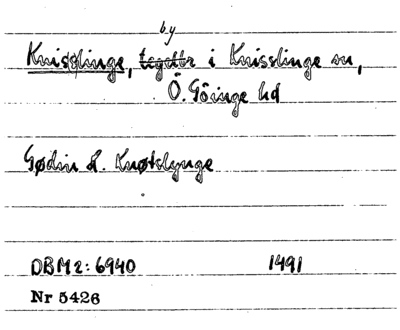 by
Knisslinge, i Knisslinge sn,
Ö. Göinge hd
Gødin Knøtslynge
DBM2: 6940 1491
Nr 5426